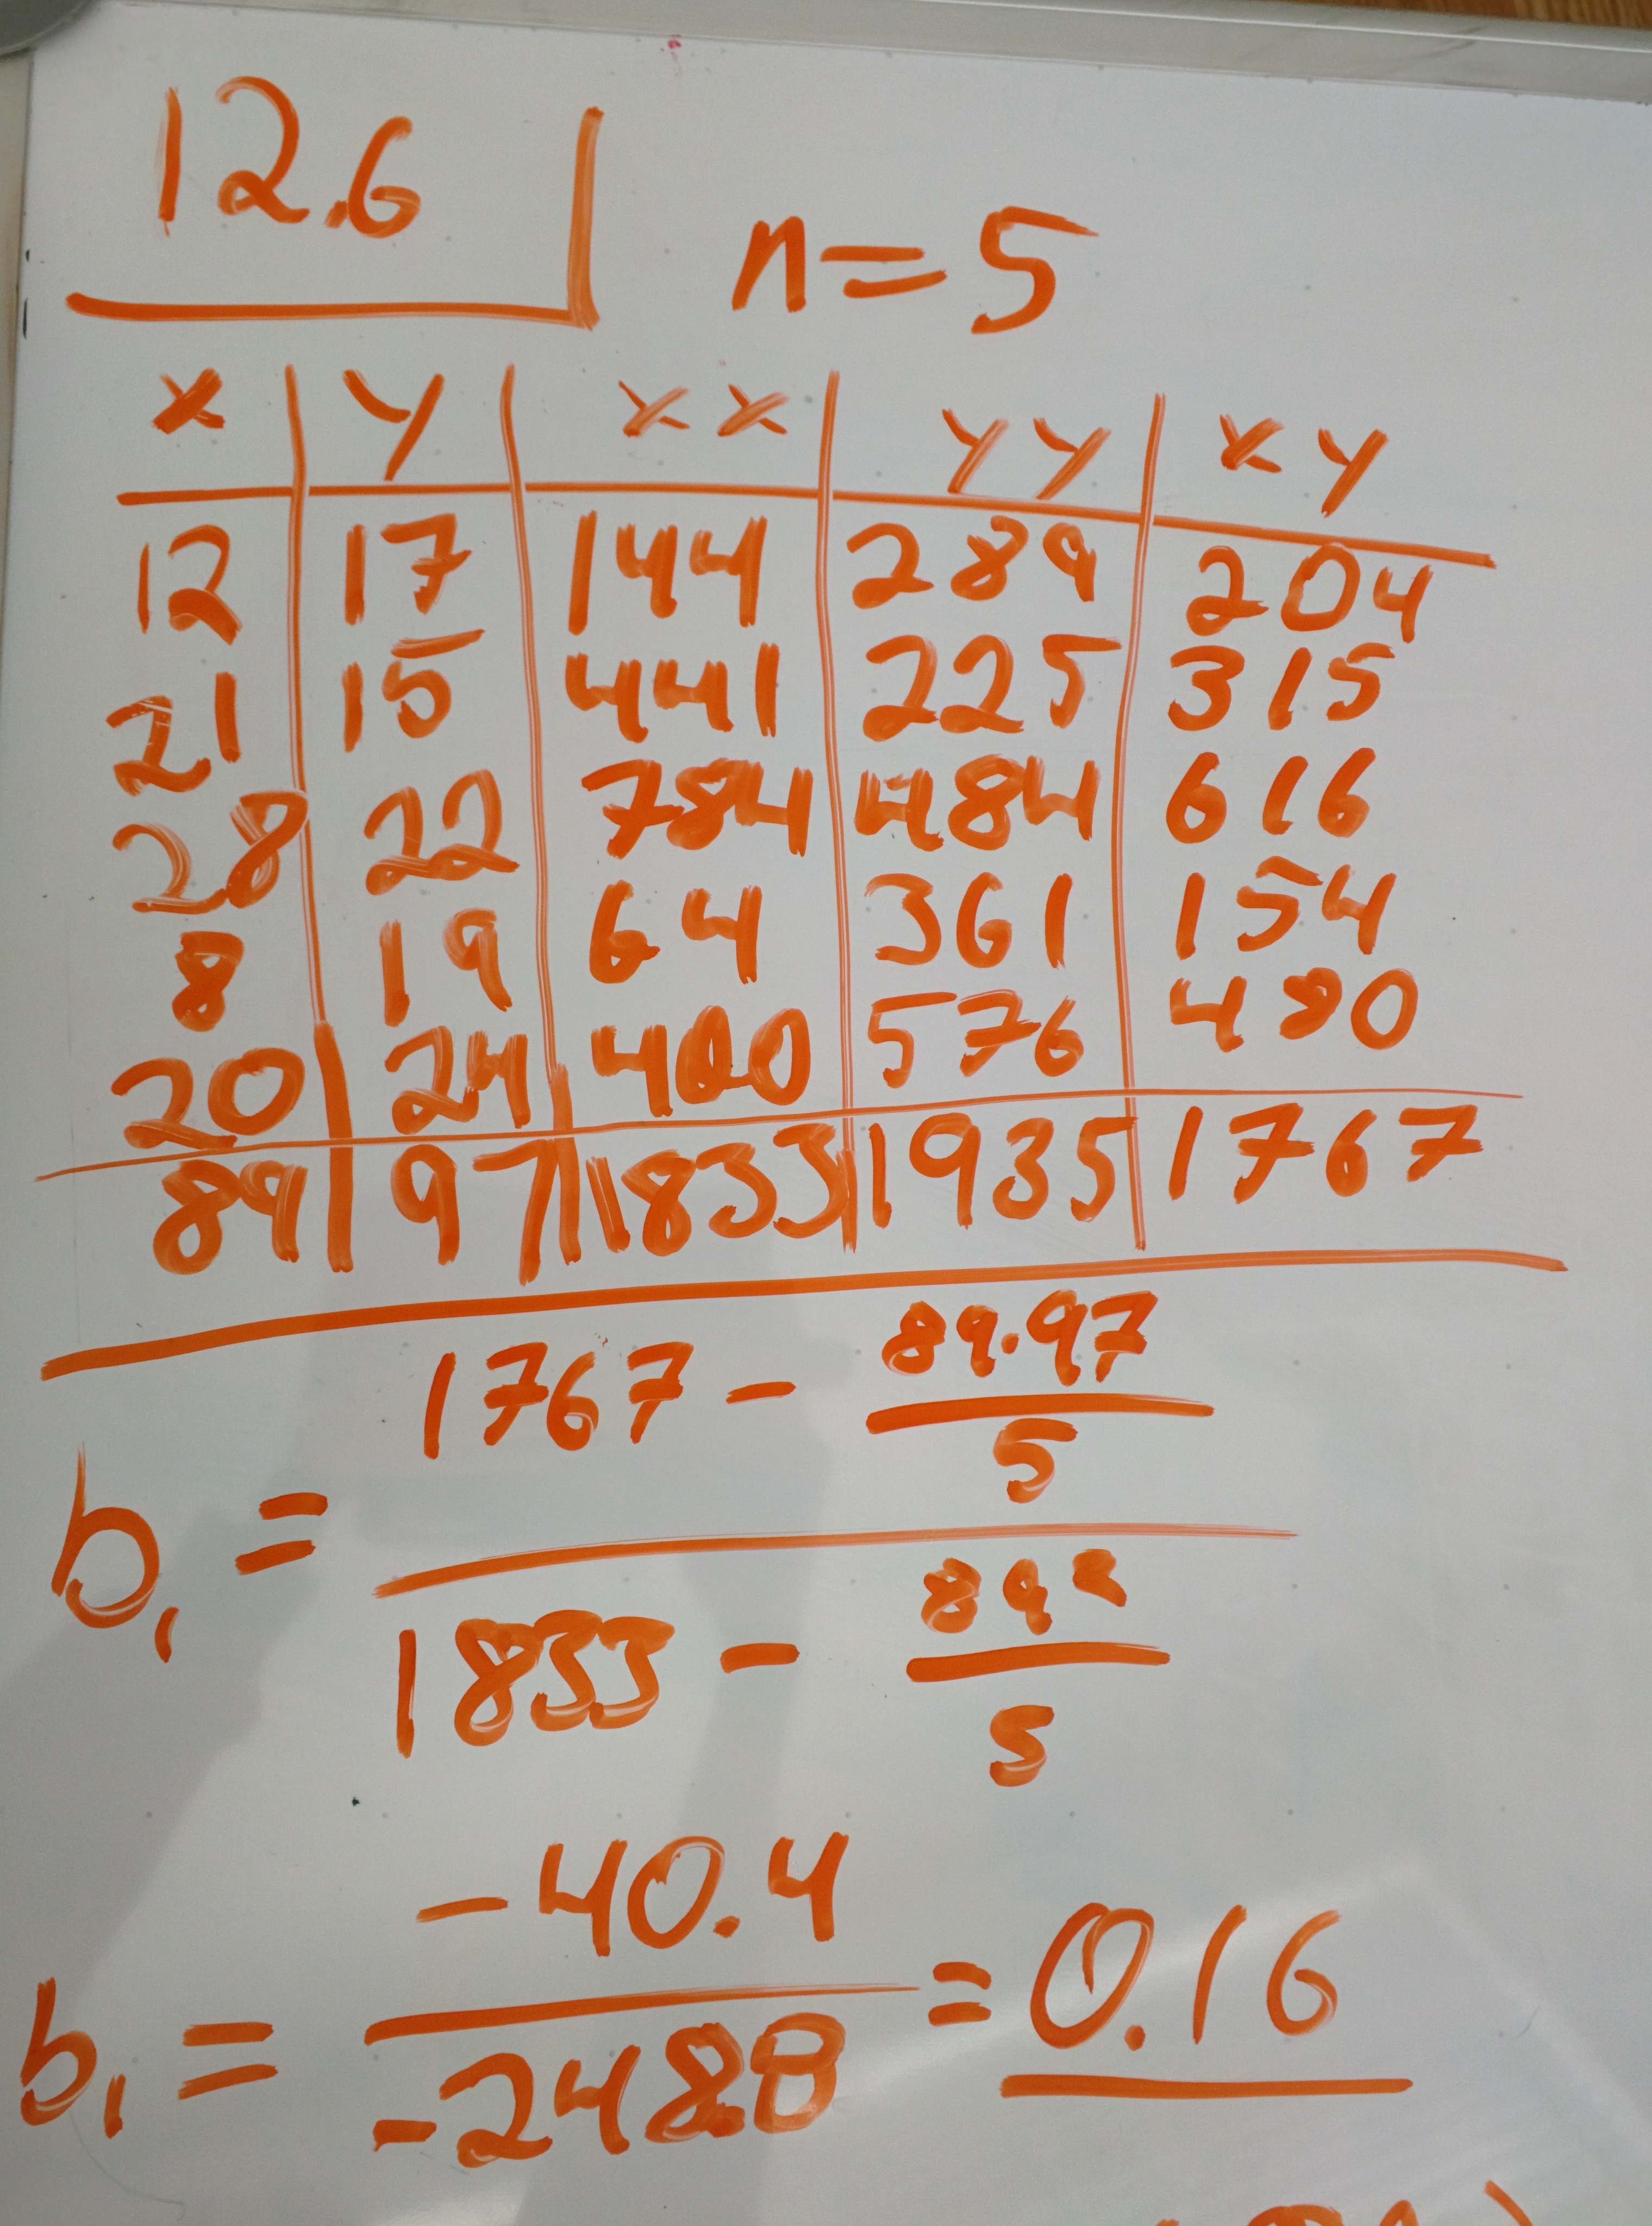 12.6
n = 5
x y xx yy xy
12 17 144 289 204
21 15 441 225 315
28 22 784 484 616
8 19 64 361 154
20 24 400 576 480
89 97 1833 1935 1767
b₁ = (1767 - (89·97)/5) / (1833 - 89²/5)
b₁ = -40.4 / -248.8 = 0.16